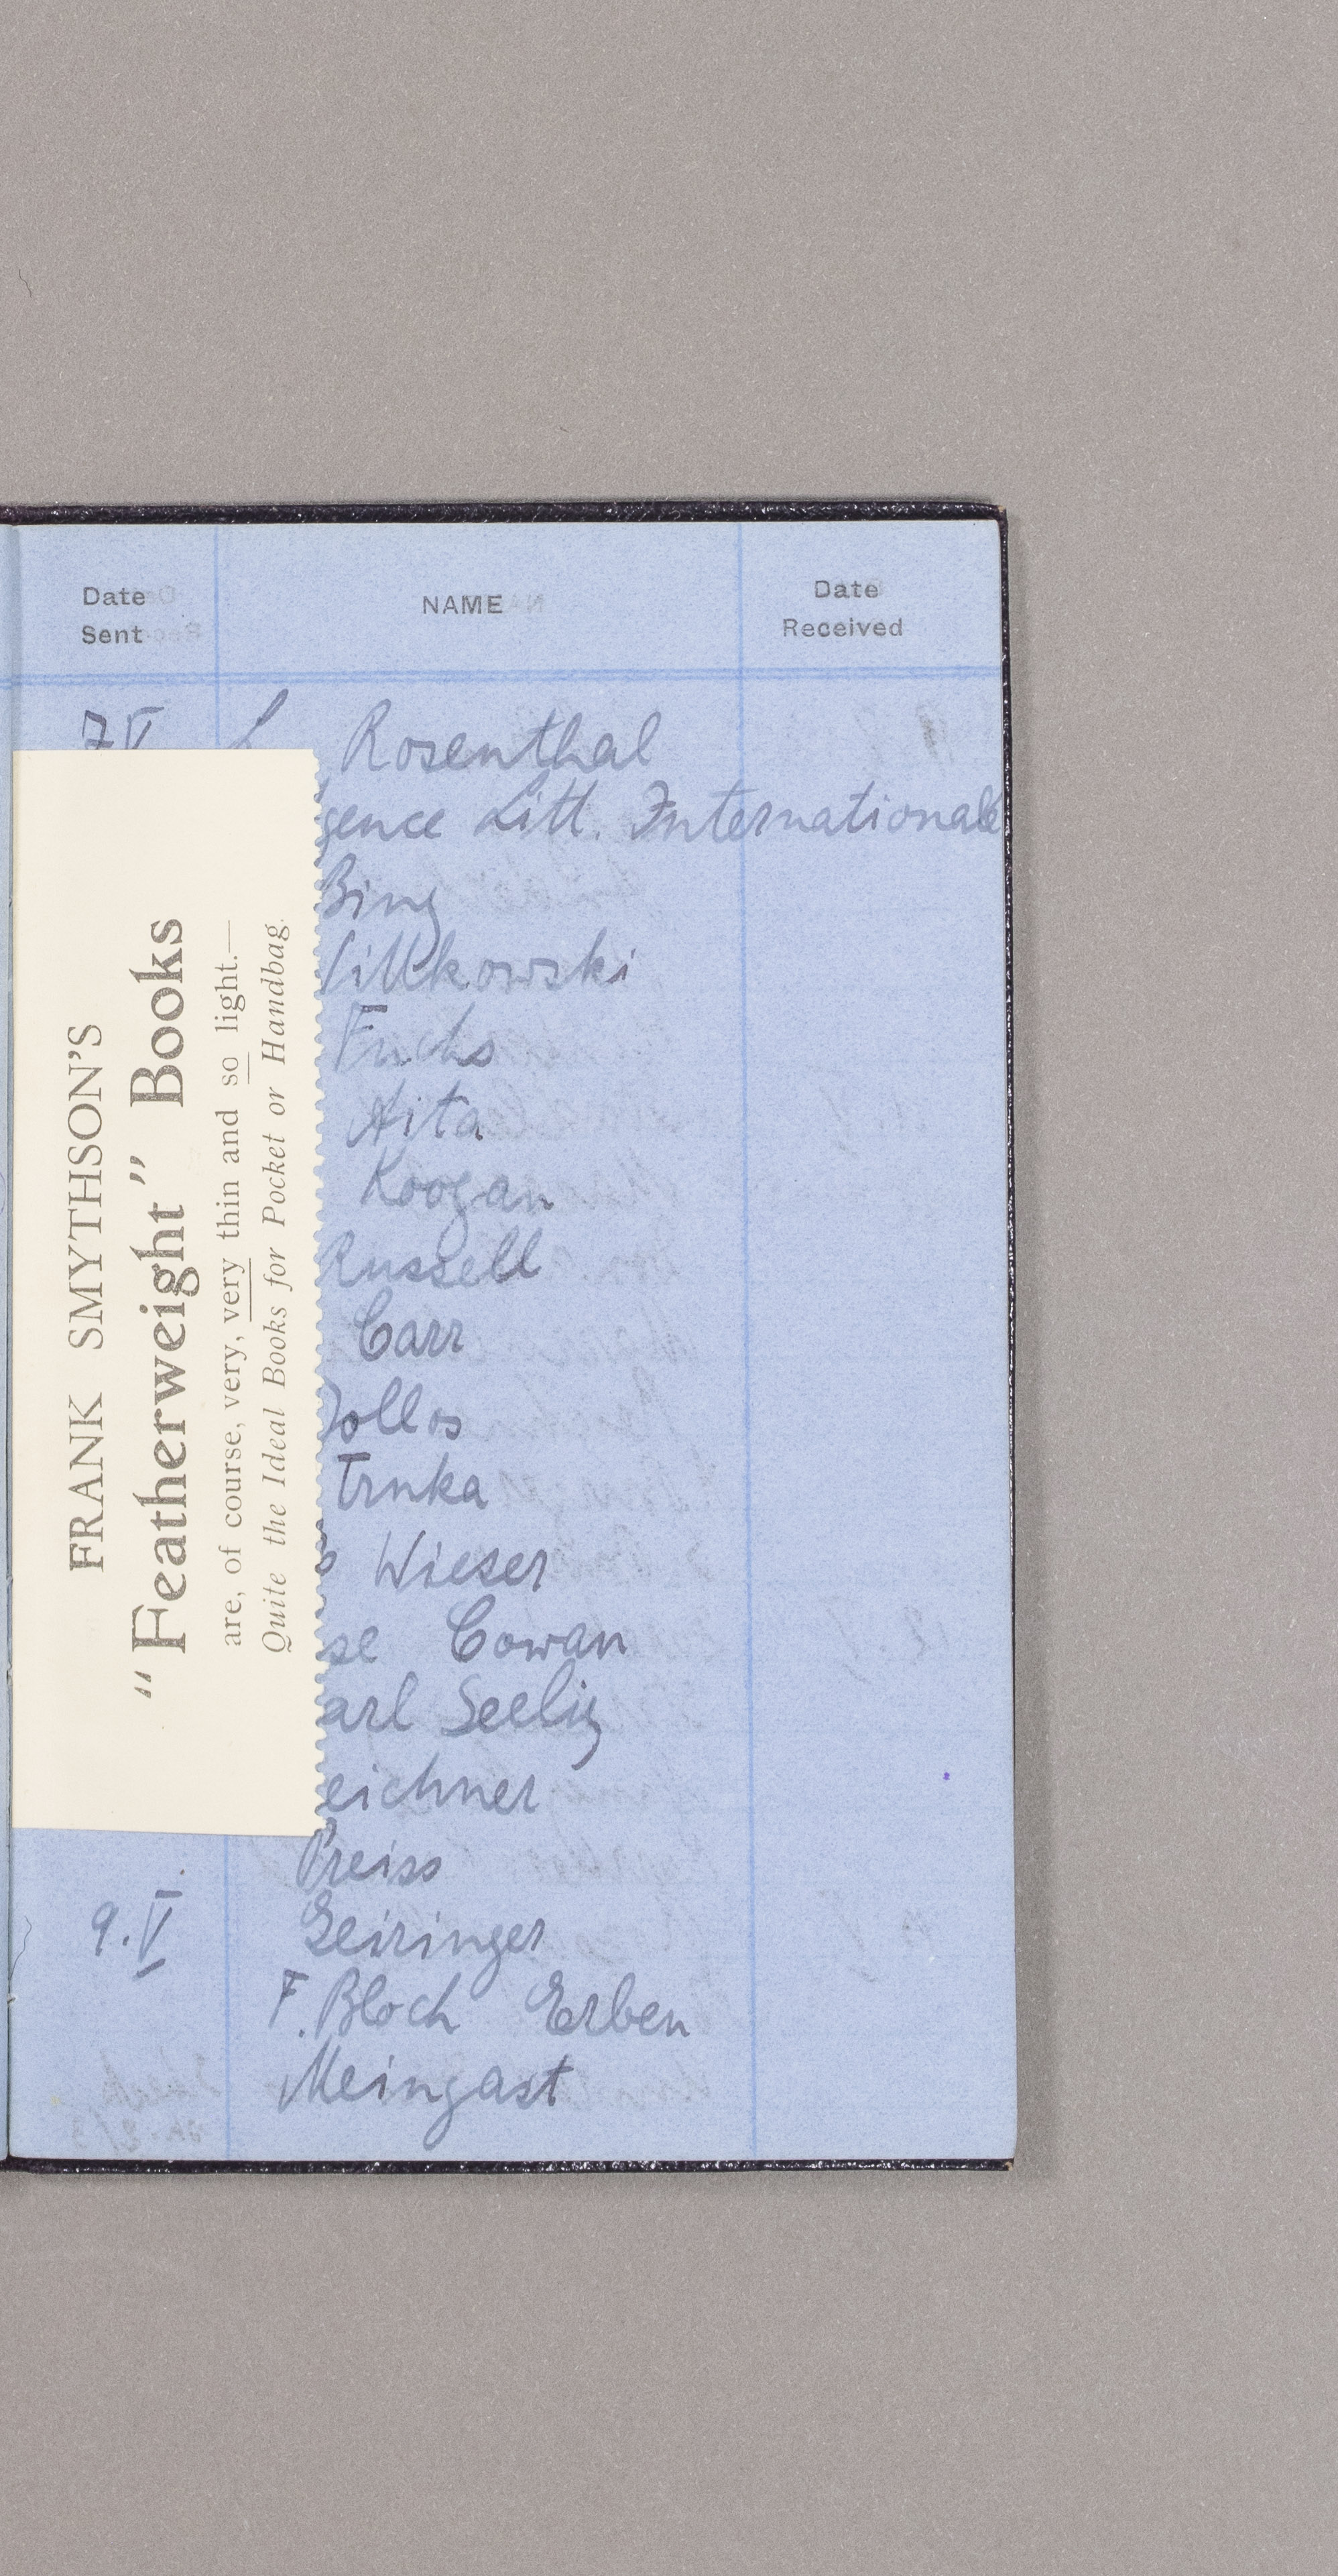 Date Sent NAME Date Received
7 V L Rosenthal
gence Litt. Internationale
Bing
illkowski
Fuchs
Aita
Koogan
Russell
Carr
ollos
Trnka
Wieser
se Cowan
arl Seelig
eichner
Preiss
9. V Geiringer
F. Bloch Erben
Meingast
FRANK SMYTHSON'S
"Featherweight" Books
are, of course, very, very thin and so light.—
Quite the Ideal Books for Pocket or Handbag.